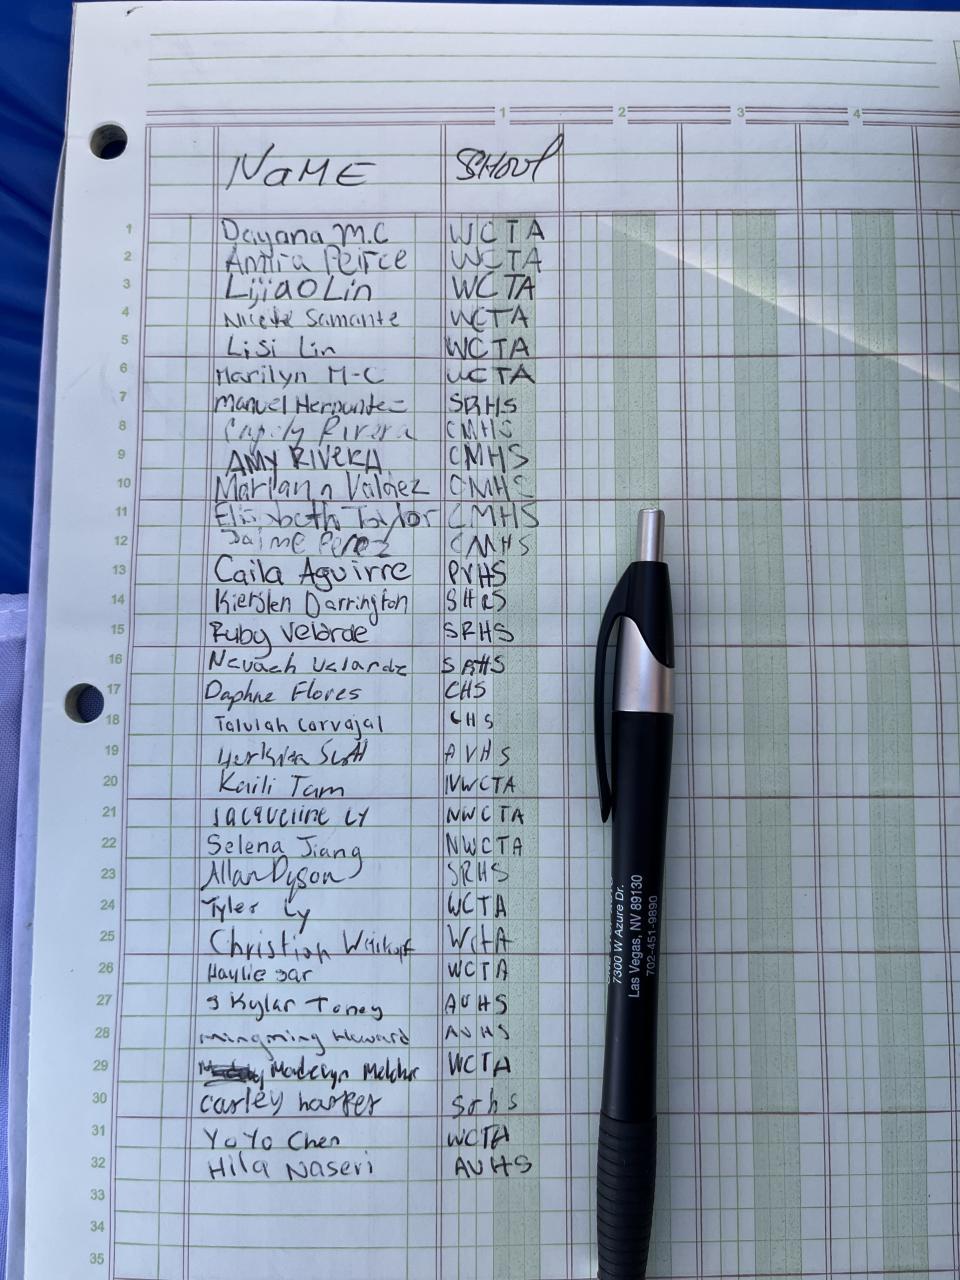 1 2 3 4
NaME SHOOL
1 Dayana M.C WCTA
2 Peirce WCTA
3 Lijiao Lin WCTA
4 Samante WCTA
5 Lisi Lin WCTA
6 Marilyn M-C WCTA
7 Manuel SRHS
8 Rivera CMHS
9 AMY RIVERA CMHS
10 Mariann Valdez CMHS
11 Elizabeth Taylor CMHS
12 Jaime Perez CMHS
13 Caila Aguirre PVHS
14 Kierslen Darrington SHRS
15 Ruby Velarde SRHS
16 Nevaeh Velarde SRHS
17 Daphne Flores CHS
18 Talulah Carvajal CHS
19 Scott AVHS
20 Kaili Tam NWCTA
21 Jacqueline Ly NWCTA
22 Selena Jiang NWCTA
23 Allan Dyson SRHS
24 Tyler Ly WCTA
25 Christian WCTA
26 Haylie Sar WCTA
27 Skylar Toney AVHS
28 mingming Howard AVHS
29 Madelyn Melchor WCTA
30 carley harper srhs
31 YoYo Chen WCTA
32 Hila Naseri AVHS
33
34
35
7300 W Azure Dr.
Las Vegas, NV 89130
702-451-9890